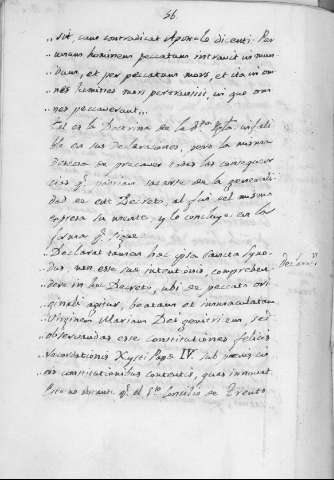 56.
„sit, cum contradicat Apostolo dicenti. Per
„unum hominem peccatum intravit in mun
„dum, et per peccatum mors, et ita in om
„nes homines mors pertransiit, in quo om
„nes peccaverunt...
Tal es la Doctrina de la Sta Igla infali
ble en sus Declaraciones, pero la misma
deseosa de precaver todas las consequen
cias q. podrian sacarse de la generali
dad de este Decreto, al fin del mismo
expresa su mente, y lo concluye en la
forma q. sigue
Declarat tamen hæc ipsa sancta Syno
dus, non esse suæ intentionis, comprehen
dere in hoc Decreto, ubi de peccato ori
ginali agitur, beatam et immaculatam
Virginem Mariam Dei genitricem, sed
observandas esse constitutiones felicis
recordationis Xysti Papæ IV. sub pœnis in
eis constitutionibus contentis, quas innovat
Esto no obstante q. el Sto Concilio de Trento